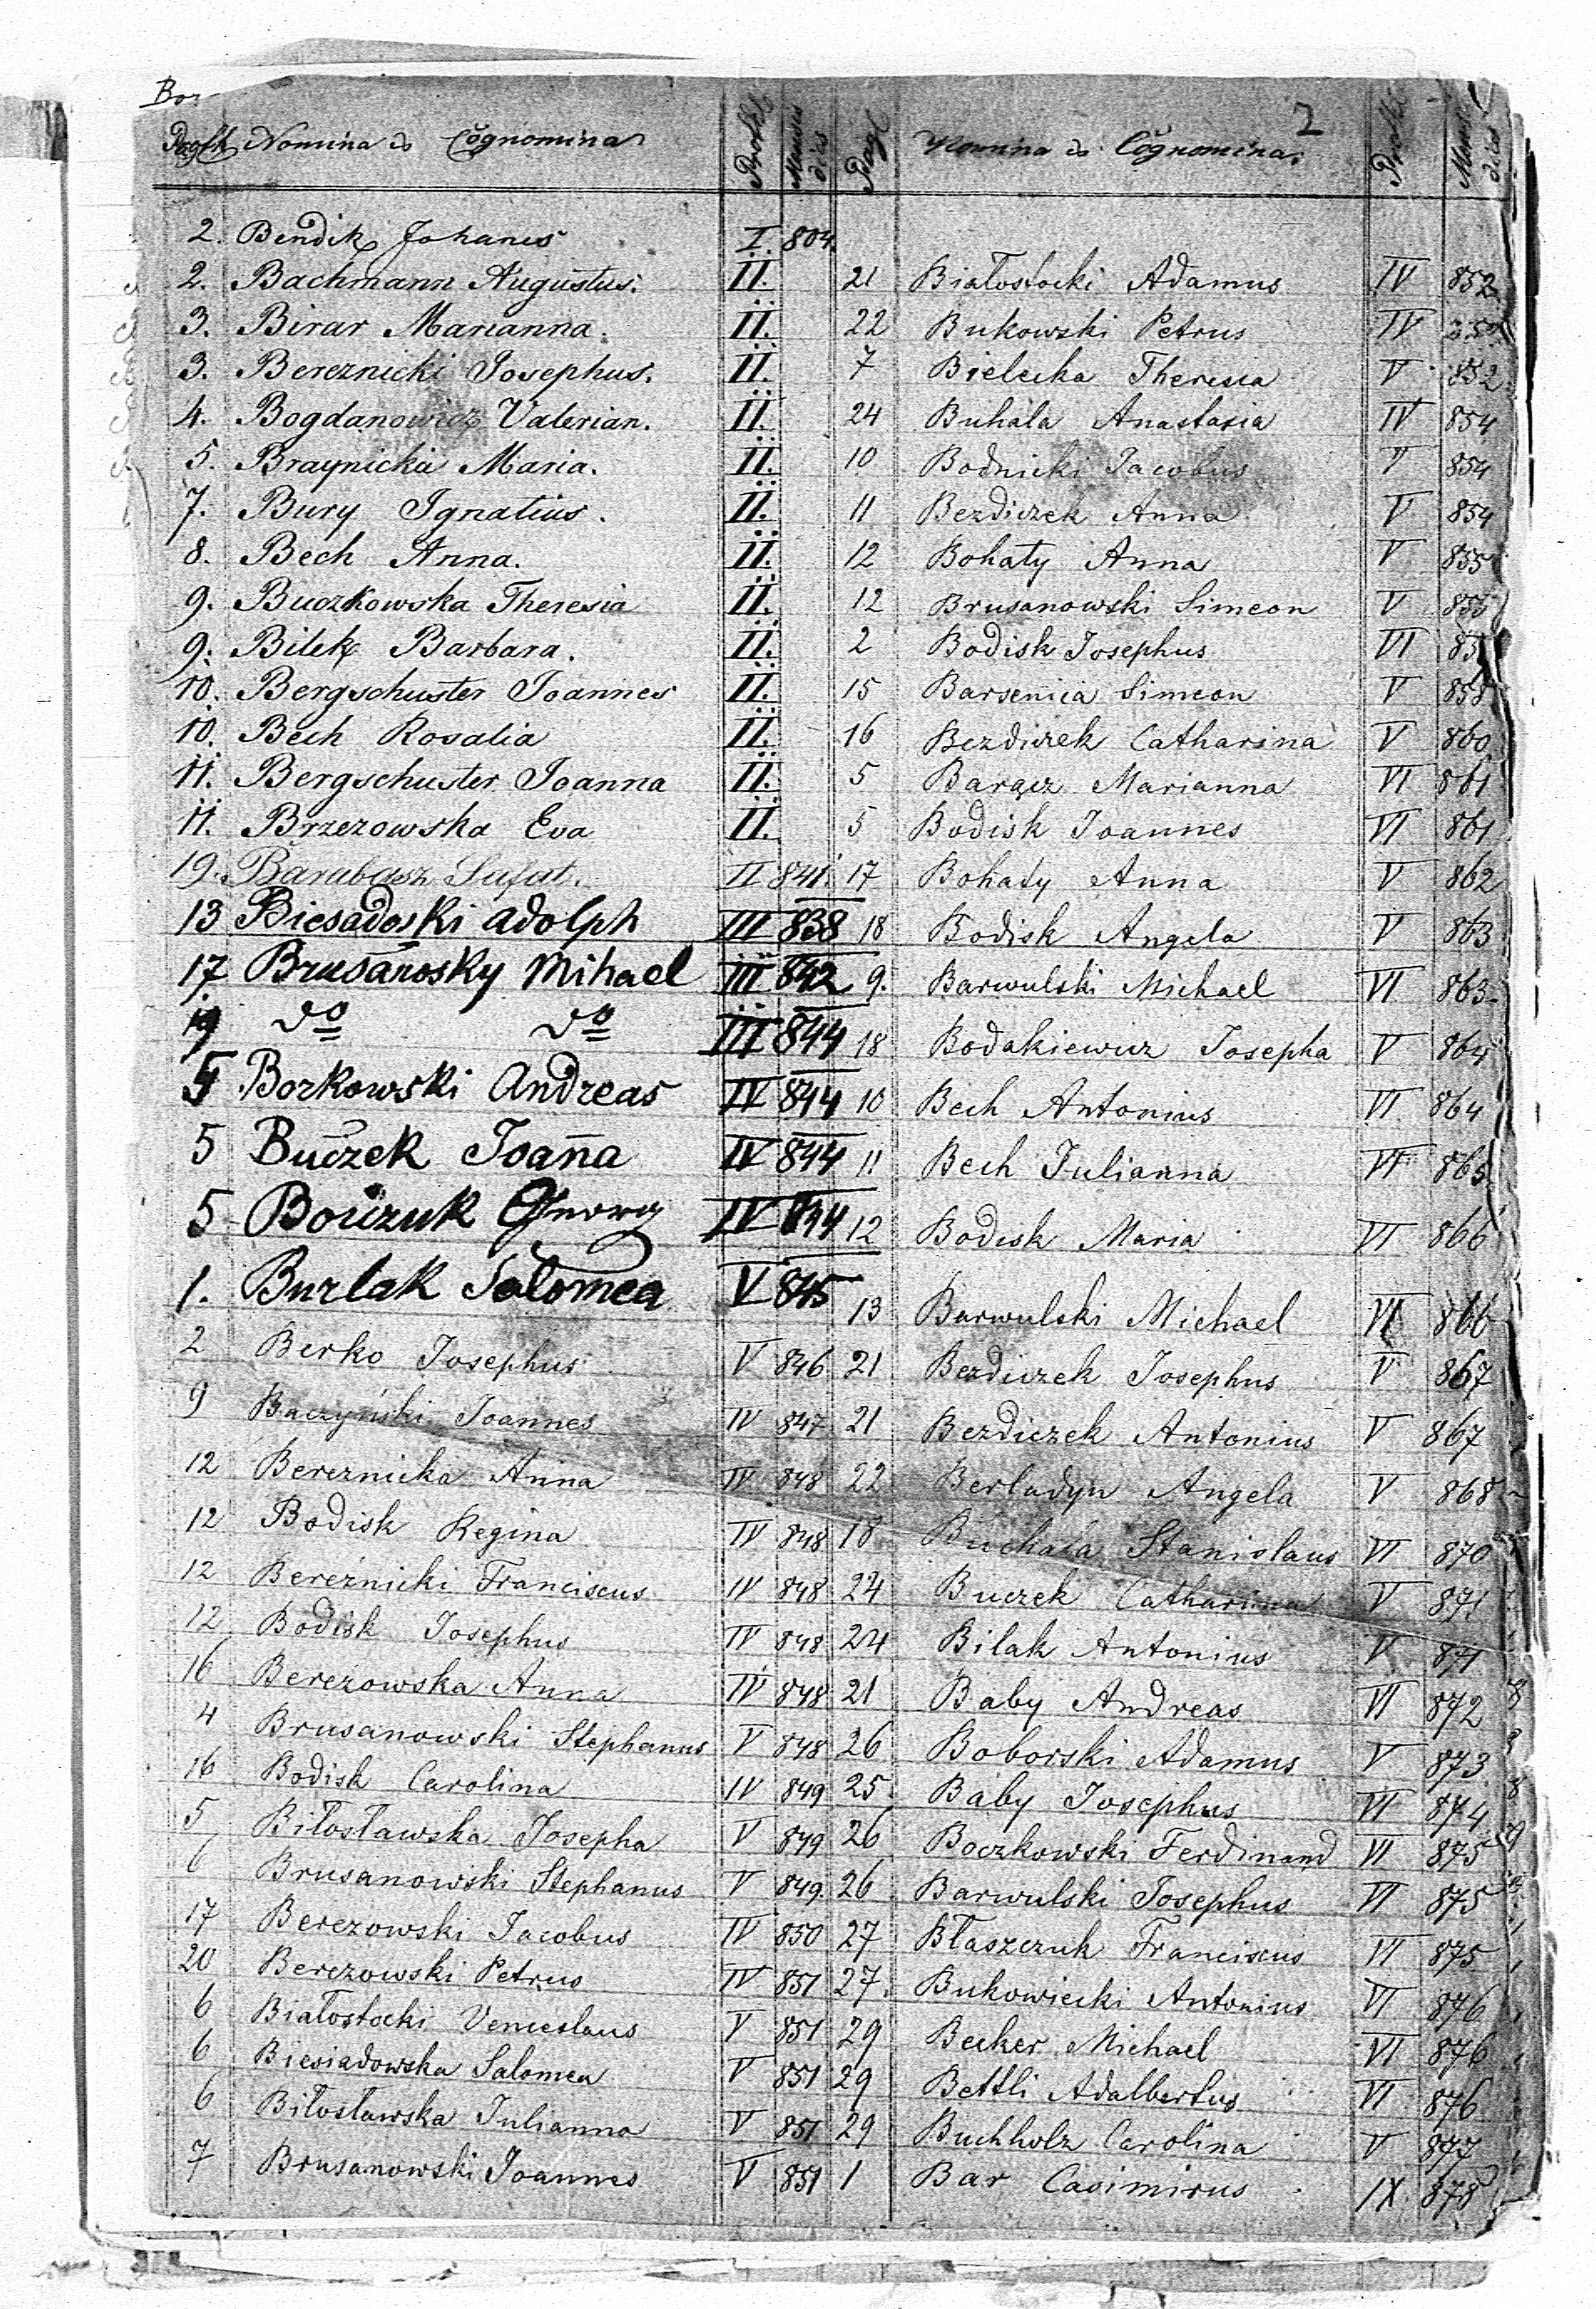 Bor
2
Pag Nomina & Cognomina Proth Mensis dies
2. Bendik Johanes I. 804.
2. Bachmann Augustus. II.
3. Birar Marianna. II.
3. Bereznicki Josephus. II.
4. Bogdanowicz Valerian. II.
5. Braynicka Maria. II.
7. Bury Ignatius. II.
8. Bech Anna. II.
9. Buczkowska Theresia II.
9. Bilek Barbara. II.
10. Bergschuster Joannes II.
10. Bech Rosalia II.
11. Bergschuster Joanna II.
11. Brzezowska Eva II.
19. Barabasz II 841.
13 Biesadoski adolph III 838
17 Brusanosky Mihael III 842
19 do do III 844
5 Borkowski Andreas IV 844
5 Buczek Joanna IV 844
5 Bouczuk IV 844
1. Burlak Salomea V 845
2 Berko Josephus V 846
9 Baczyński Joannes IV 847
12 Bereznicka Anna IV 848
12 Bodisk Regina IV 848
12 Bereznicki Franciscus IV 848
12 Bodisk Josephus IV 848
16 Berezowska Anna IV 848
4 Brusanowski Stephanus V 848
16 Bodisk Carolina IV 849
5 Biłosławska Josepha V 849
6 Brusanowski Stephanus V 849.
17 Berezowski Jacobus IV 850
20 Berezowski Petrus IV 851
6 Białostocki Venceslaus V 851
6 Biesiadowska Salomea V 851
6 Biłosławska Julianna V 851
7 Brusanowski Joannes V 851
Pag Nomina & Cognomina. Proth Mensis dies
21 Białostocki Adamus IV 852
22 Bukowski Petrus IV 852
7 Bielecka Theresia V 852
24 Buhała Anastasia IV 854
10 Bodnicki Jacobus V 854
11 Bezdiczek Anna V 854
12 Bohaty Anna V 855
12 Brusanowski Simeon V 855
2 Bodisk Josephus VI
15 Barsenica Simeon V 858
16 Bezdiczek Catharina V 860
5 Barącz Marianna VI 861
5 Bodisk Joannes VI 861
17 Bohaty Anna V 862
18 Bodisk Angela V 863
9. Barwulski Michael VI 863
18 Bodakiewicz Josepha V 864
10 Bech Antonius VI 864
11 Bech Julianna VI 865
12 Bodisk Maria VI 866
13 Barwulski Michael VI 866
21 Bezdiczek Josephus V 867
21 Bezdiczek Antonius V 867
22 Berladyn Angela V 868
18 Buchała Stanislaus VI 870
24 Buczek Catharina V 871
24 Bilak Antonius V 871
21 Baby Andreas VI 872
26 Boborski Adamus V 873
25 Baby Josephus VI 874
26 Boczkowski Ferdinand VI 875
26 Barwulski Josephus VI 875
27 Błaszczuk Franciscus VI 875
27. Bukowiecki Antonius VI 876
29 Becker Michael VI 876
29 Bettli Adalbertus VI 876
29 Buchholz Carolina V 877
1 Bar Casimirus IX. 878